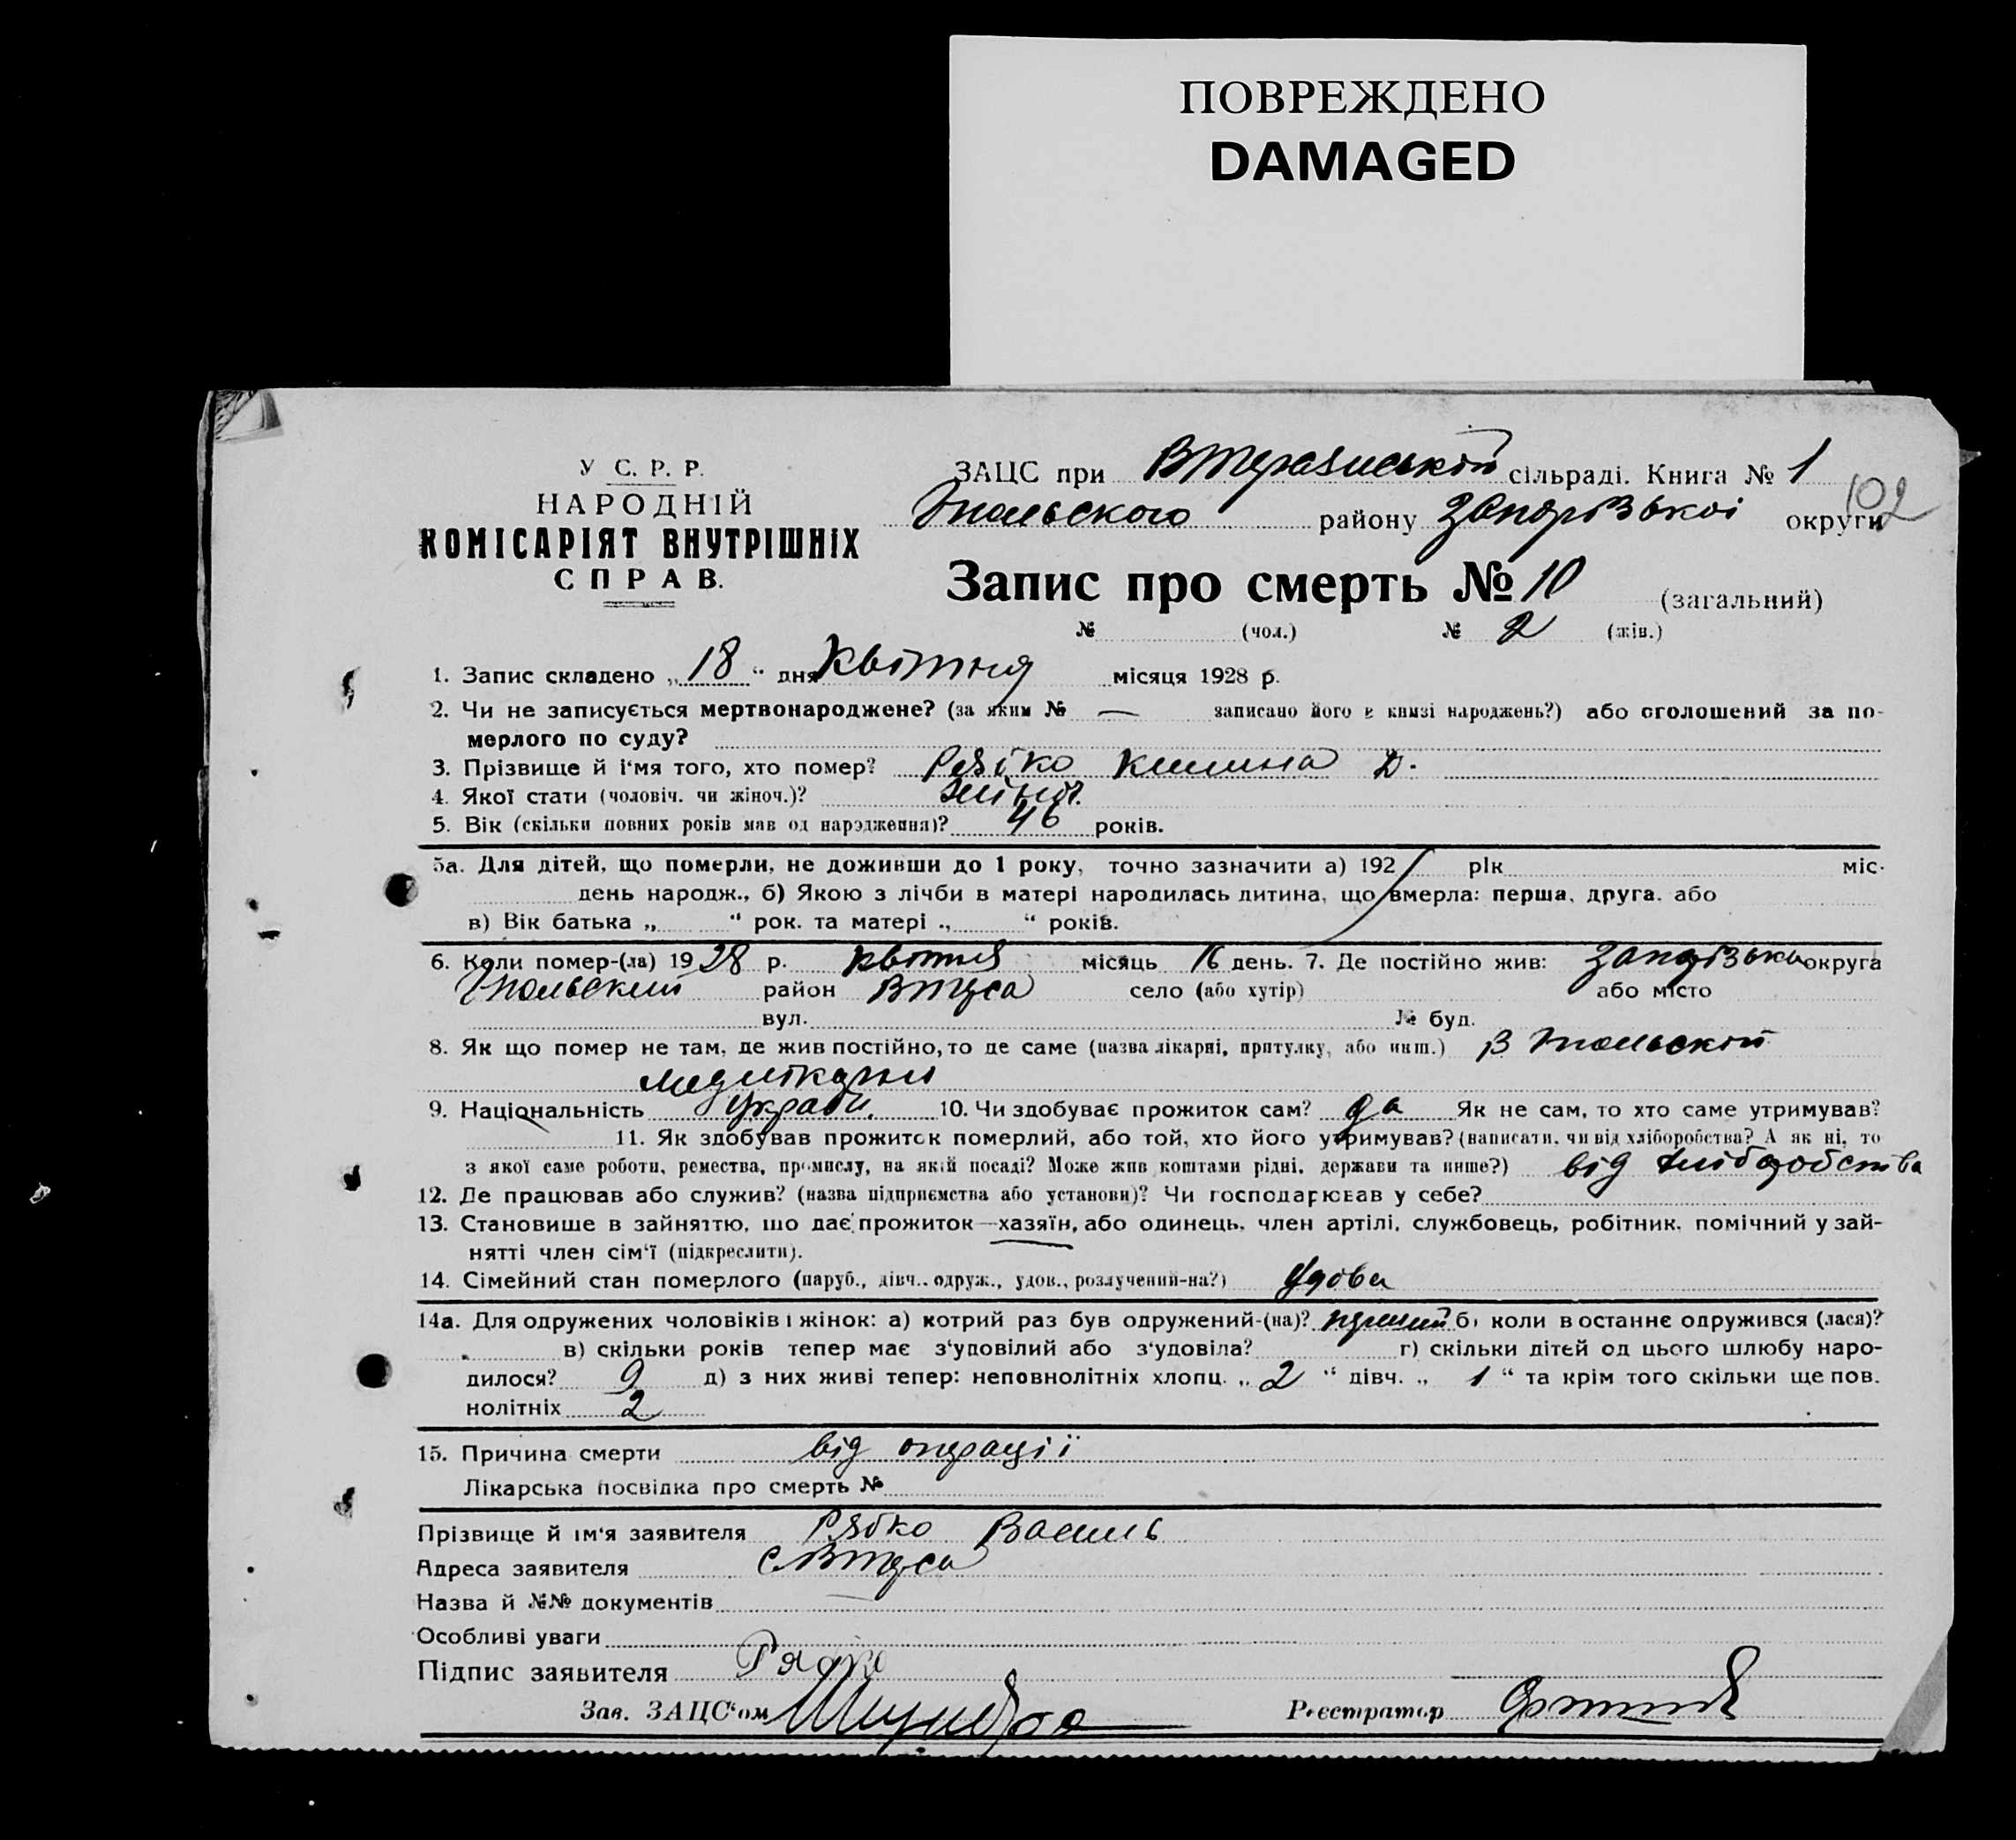 ПОВРЕЖДЕНО
DAMAGED
У С. Р. Р.
НАРОДНІЙ
КОМІСАРІЯТ ВНУТРІШНІХ
СПРАВ.
ЗАЦС при сільраді. Книга № 1
102
району округи
Запис про смерть № 10 (загальний)
№ (чол.) № 2 (жін.)
1. Запис складено „ 18 “ дня Квітня місяця 1928 р.
2. Чи не записується мертвонароджене? (за яким № — записано його в книзі народжень?) або оголошений за по-
мерлого по суду?
3. Прізвище й і‘мя того, хто помер? Рябко Д.
4. Якої стати (чоловіч. чи жіноч.)? жіноч.
5. Вік (скільки повних років мав од народження)? 46 років.
5а. Для дітей, що померли, не доживши до 1 року, точно зазначити а) 192 рік міс.
день народж., б) Якою з лічби в матері народилась дитина, що вмерла: перша, друга. або
в) Вік батька „ “ рок. та матері „ “ років.
6. Коли помер-(ла) 1928 р. квітня місяць 16 день. 7. Де постійно жив: округа
район село (або хутір) або місто
вул. № буд.
8. Як що помер не там, де жив постійно, то де саме (назва лікарні, притулку, або инш.) в
9. Національність 10. Чи здобуває прожиток сам? да Як не сам, то хто саме утримував?
11. Як здобував прожиток померлий, або той, хто його утримував? (написати, чи від хліборобства? А як ні, то
з якої саме роботи, ремества, промислу, на якій посаді? Може жив коштами рідні, держави та инше?) від хліборобства
12. Де працював або служив? (назва підприємства або установи)? Чи господарював у себе?
13. Становище в зайняттю, що дає прожиток—хазяїн, або одинець, член артілі, службовець, робітник, помічний у зай-
нятті член сім‘ї (підкреслити).
14. Сімейний стан померлого (паруб., дівч., одруж., удов., розлучений-на?) Удова
14а. Для одружених чоловіків і жінок: а) котрий раз був одружений-(на)? перший б) коли в останнє одружився (лася)?
в) скільки років тепер має з‘удовілий або з‘удовіла? г) скільки дітей од цього шлюбу наро-
дилося? 9 д) з них живі тепер: неповнолітніх хлопц. „ 2 “ дівч. „ 1 “ та крім того скільки ще пов.
нолітніх 2
15. Причина смерти від операції
Лікарська посвідка про смерть №
Прізвище й ім‘я заявителя Рябко Василь
Адреса заявителя
Назва й №№ документів
Особливі уваги
Підпис заявителя Рябко
Зав. ЗАЦС‘ом Реєстратор